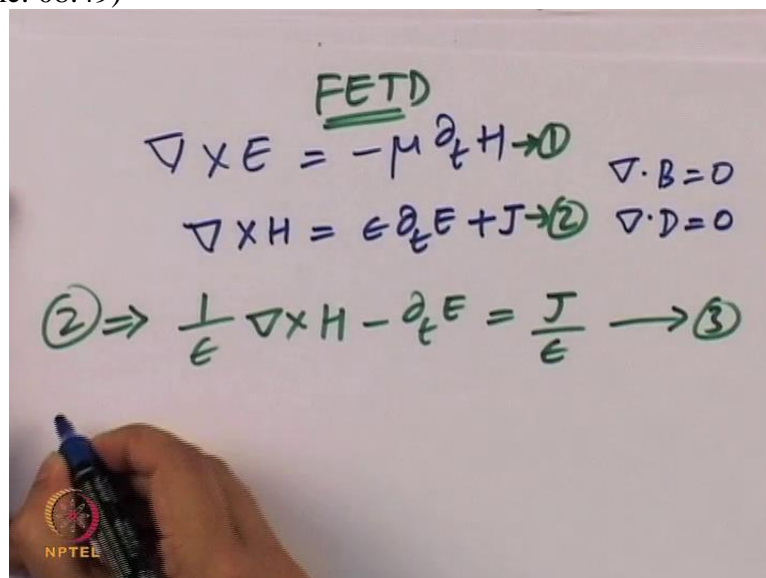 FETD
∇ × E = -μ ∂ₜ H → ①
∇ · B = 0
∇ × H = ϵ ∂ₜ E + J → ②
∇ · D = 0
② ⇒ 1/ϵ ∇ × H - ∂ₜ E = J/ϵ → ③
NPTEL